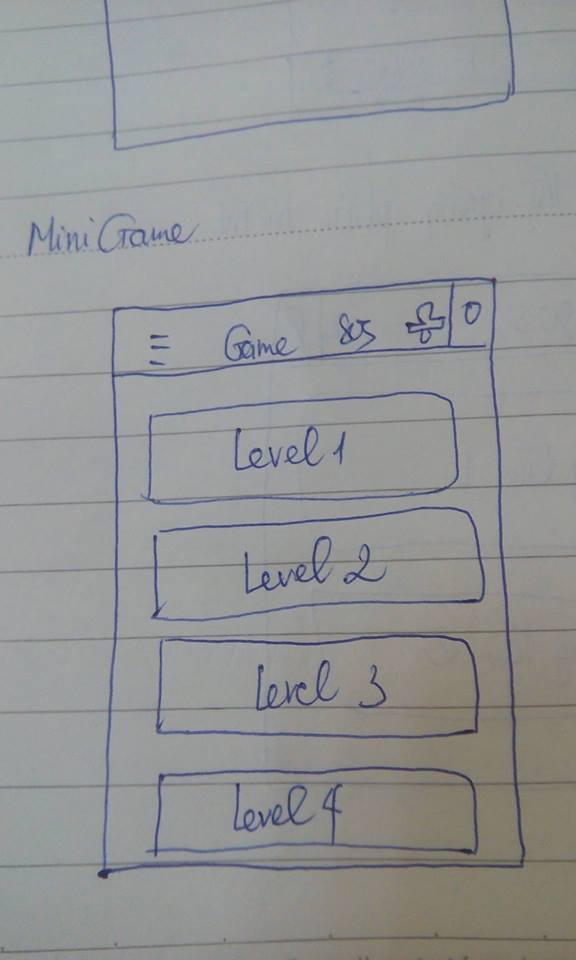 MiniGame
Game 85 0
Level 1
Level 2
Level 3
Level 4